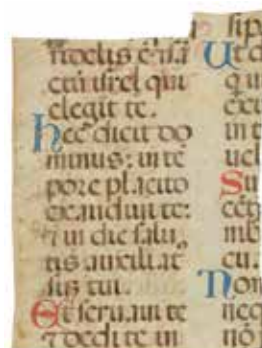 fidelis ē. ⁊ sā
ctus isrel qui
elegit te.
hec dicit do
minus: in tē
pore placito
exaudiui te:
⁊ in die salu
tis auxiliat
sus tui.
Et seruaui te
⁊ dedi te in
sip
Ut c
q ui
in t
uel
Su
mb
cu.
Non
nec
nō